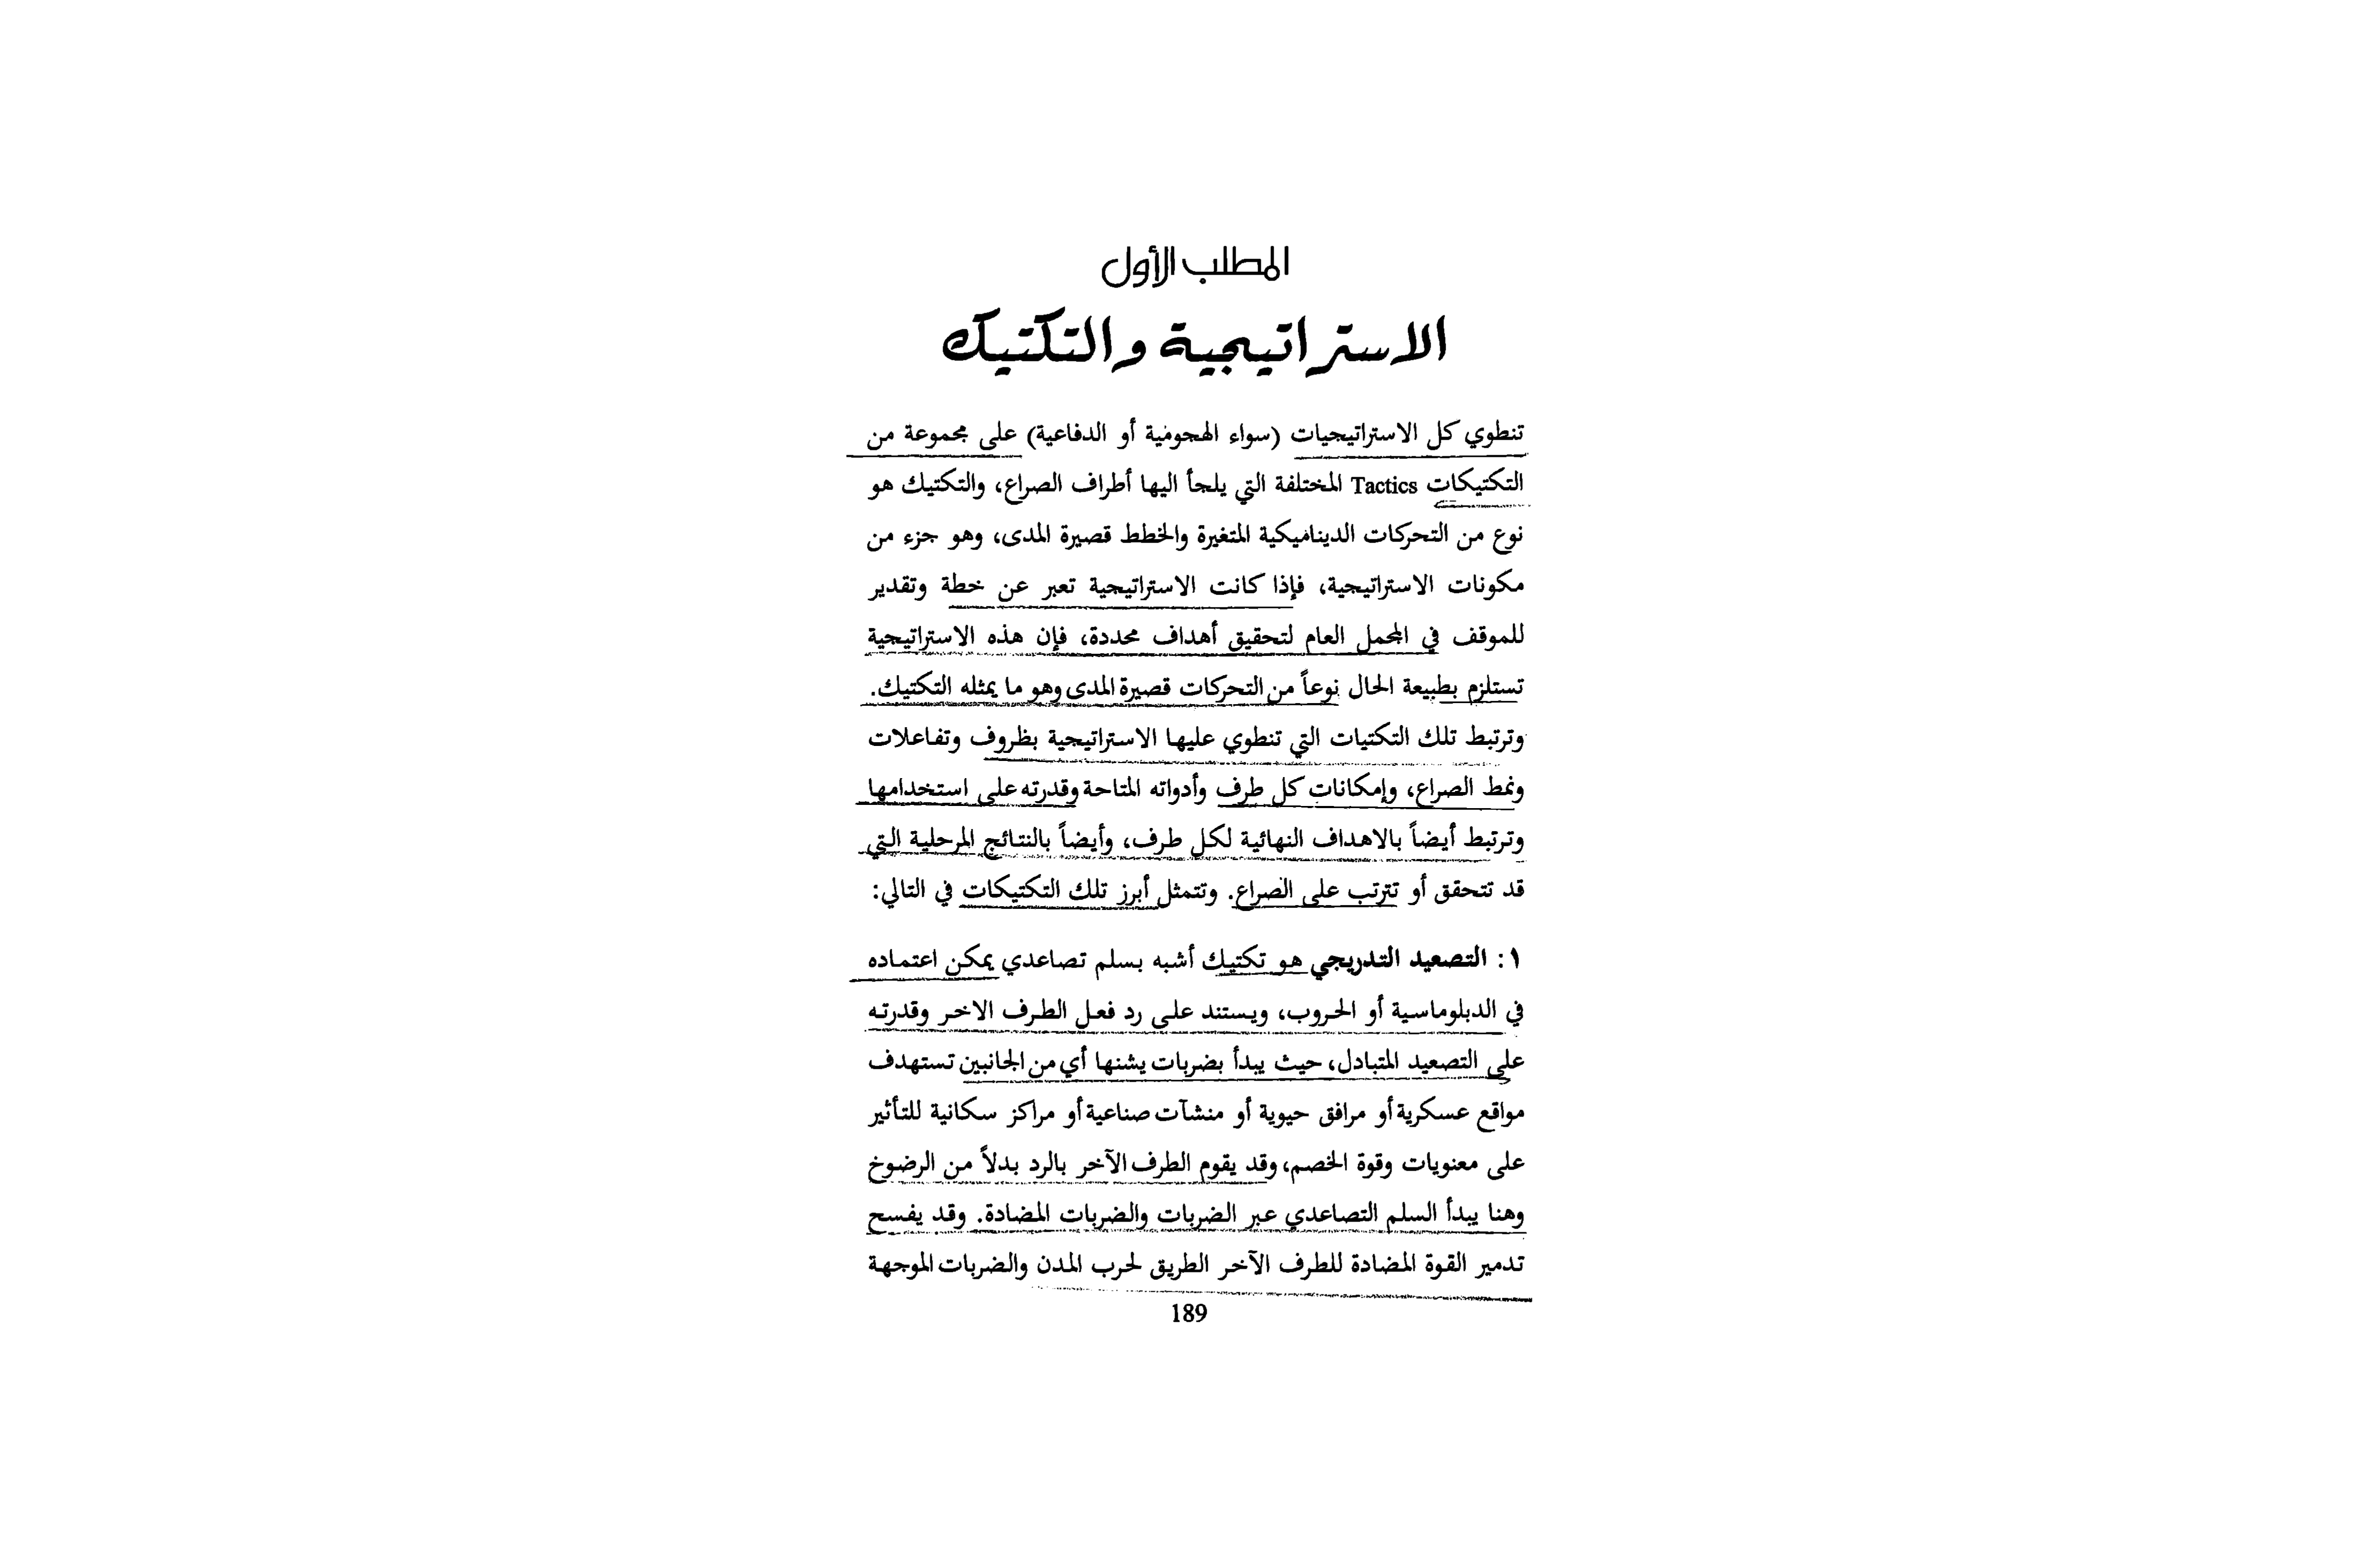 المطلب الأول
الاستراتيجية والتكتيك
تنطوي كل الاستراتيجيات (سواء الهجومية أو الدفاعية) على مجموعة من
التكتيكات Tactics المختلفة التي يلجأ اليها أطراف الصراع، والتكتيك هو
نوع من التحركات الديناميكية المتغيرة والخطط قصيرة المدى، وهو جزء من
مكونات الاستراتيجية، فإذا كانت الاستراتيجية تعبر عن خطة وتقدير
للموقف في المجمل العام لتحقيق أهداف محددة، فإن هذه الاستراتيجية
تستلزم بطبيعة الحال نوعاً من التحركات قصيرة المدى وهو ما يمثله التكتيك.
وترتبط تلك التكتيات التي تنطوي عليها الاستراتيجية بظروف وتفاعلات
ونمط الصراع، وإمكانات كل طرف وأدواته المتاحة وقدرته على استخدامها
وترتبط أيضاً بالاهداف النهائية لكل طرف، وأيضاً بالنتائج المرحلية التي
قد تتحقق أو تترتب على الصراع. وتتمثل أبرز تلك التكتيكات في التالي:
١: التصعيد التدريجي هو تكتيك أشبه بسلم تصاعدي يمكن اعتماده
في الدبلوماسية أو الحروب، ويستند على رد فعل الطرف الاخر وقدرته
على التصعيد المتبادل، حيث يبدأ بضربات يشنها أي من الجانبين تستهدف
مواقع عسكرية أو مرافق حيوية أو منشآت صناعية أو مراكز سكانية للتأثير
على معنويات وقوة الخصم، وقد يقوم الطرف الآخر بالرد بدلاً من الرضوخ
وهنا يبدأ السلم التصاعدي عبر الضربات والضربات المضادة. وقد يفسح
تدمير القوة المضادة للطرف الآخر الطريق لحرب المدن والضربات الموجهة
189